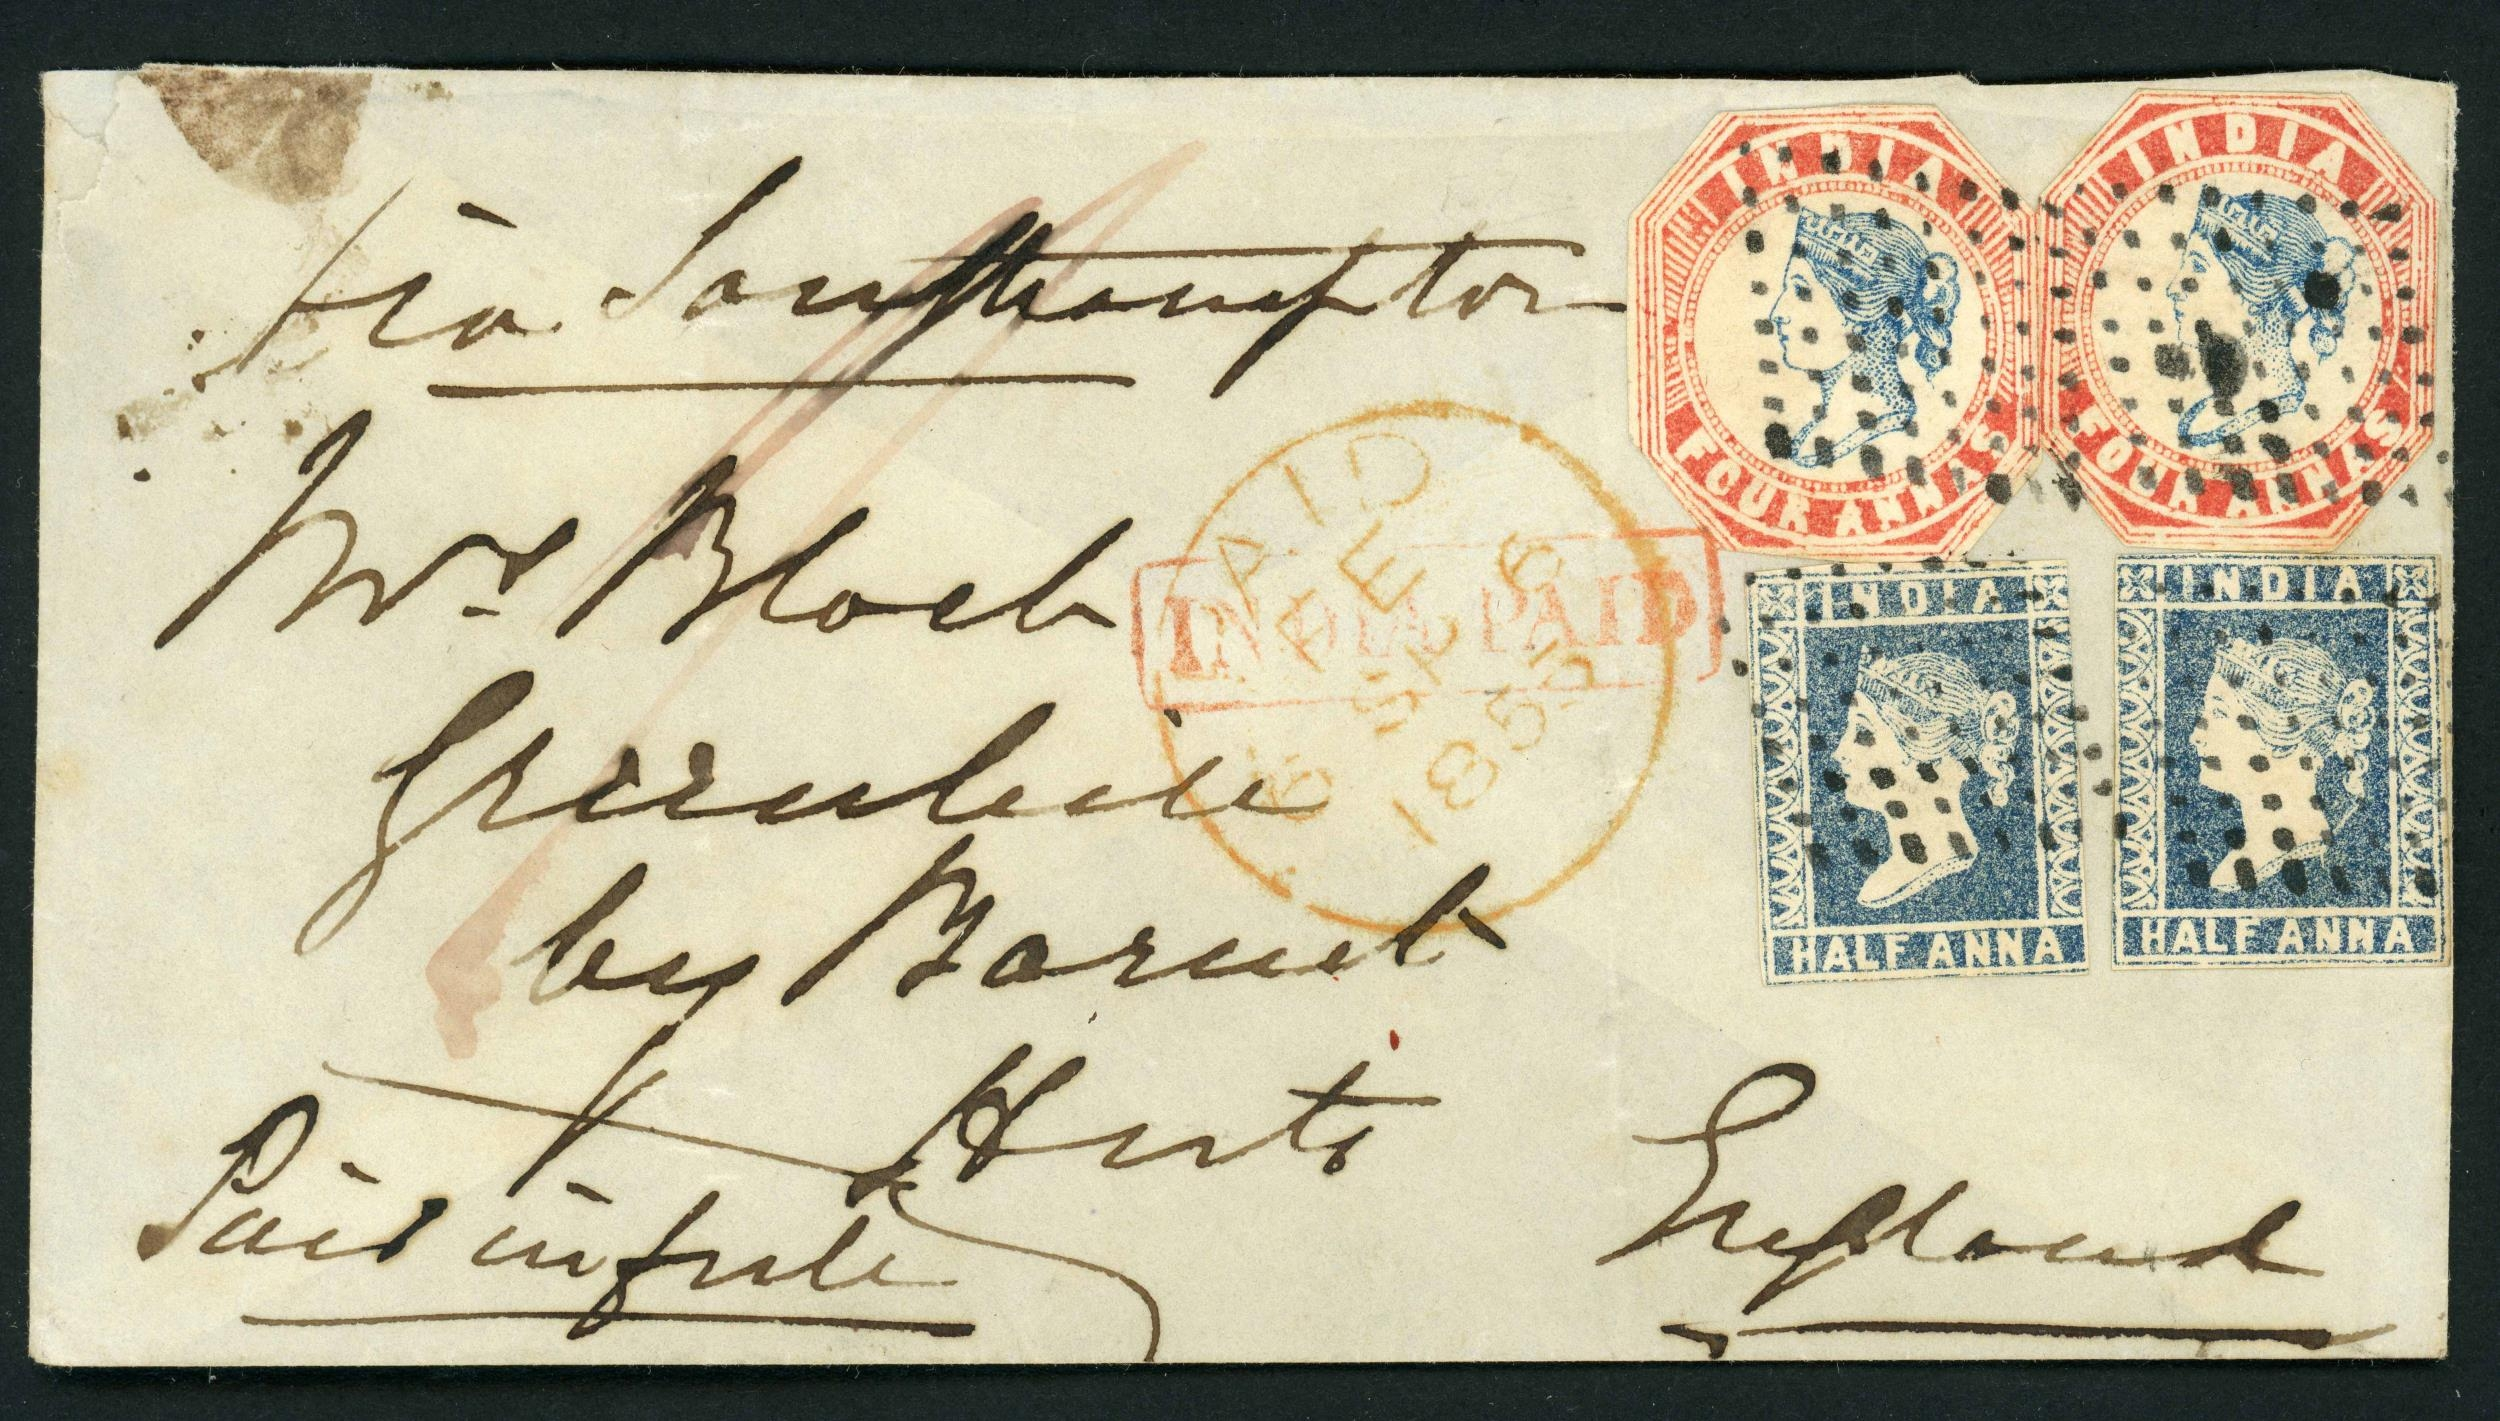 via Southampton
INDIA
FOUR ANNAS
INDIA
FOUR ANNAS
Mrs. Block
INDIA PAID
PAID
6 SP 6
1855
INDIA
HALF ANNA
INDIA
HALF ANNA
by Barnet
Herts
Paid in full
England